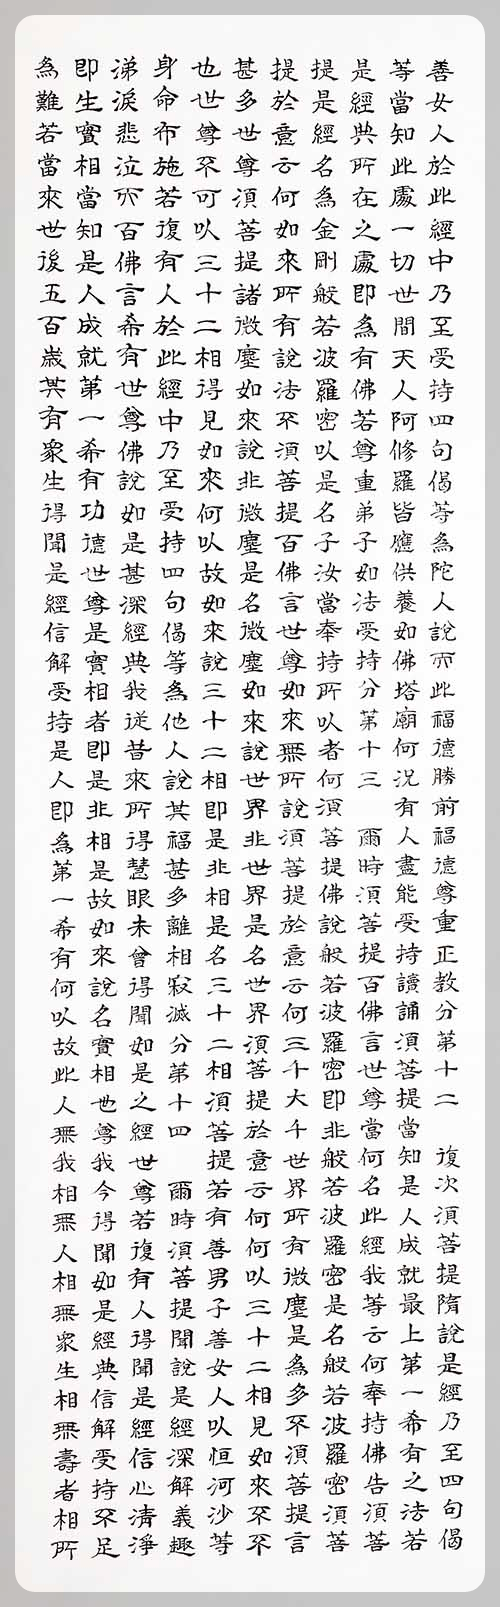 善女人於此經中乃至受持四句偈等為陀人說而此福德勝前福德尊重正教分第十二 復次湏菩提隋說是經乃至四句偈
等當知此處一切世間天人阿修羅皆應供養如佛塔廟何況有人盡能受持讀誦湏菩提當知是人成就最上第一希有之法若
是經典所在之處即為有佛若尊重弟子如法受持分第十三 爾時湏菩提百佛言世尊當何名此經我等云何奉持佛告湏菩
提是經名為金剛般若波羅密以是名子汝當奉持所以者何湏菩提佛說般若波羅密即非般若波羅密是名般若波羅密湏菩
提於意云何如來所有說法不湏菩提百佛言世尊如來無所說湏菩提於意云何三千大千世界所有微塵是為多不湏菩提言
甚多世尊湏菩提諸微塵如來說非微塵是名微塵如來說世界非世界是名世界湏菩提於意云何何以三十二相見如來不不
也世尊不可以三十二相得見如來何以故如來說三十二相即是非相是名三十二相湏菩提若有善男子善女人以恒河沙等
身命布施若復有人於此經中乃至受持四句偈等為他人說其福甚多離相寂滅分第十四 爾時湏菩提聞說是經深解義趣
涕淚悲泣而百佛言希有世尊佛說如是甚深經典我從昔來所得慧眼未曾得聞如是之經世尊若復有人得聞是經信心清淨
即生實相當知是人成就第一希有功德世尊是實相者即是非相是故如來說名實相也尊我今得聞如是經典信解受持不足
為難若當來世後五百歲其有眾生得聞是經信解受持是人即為第一希有何以故此人無我相無人相無眾生相無壽者相所